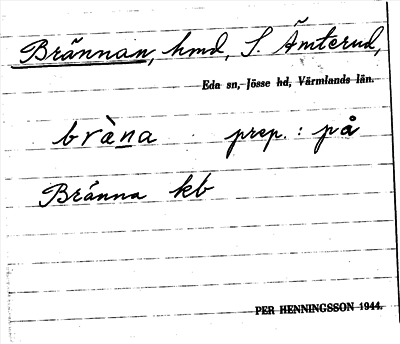 Brännan, hmd, S. Ämterud,
Eda sn, Jösse hd, Värmlands län.
bràna prep.: på
Bránna kb
PER HENNINGSSON 1944.